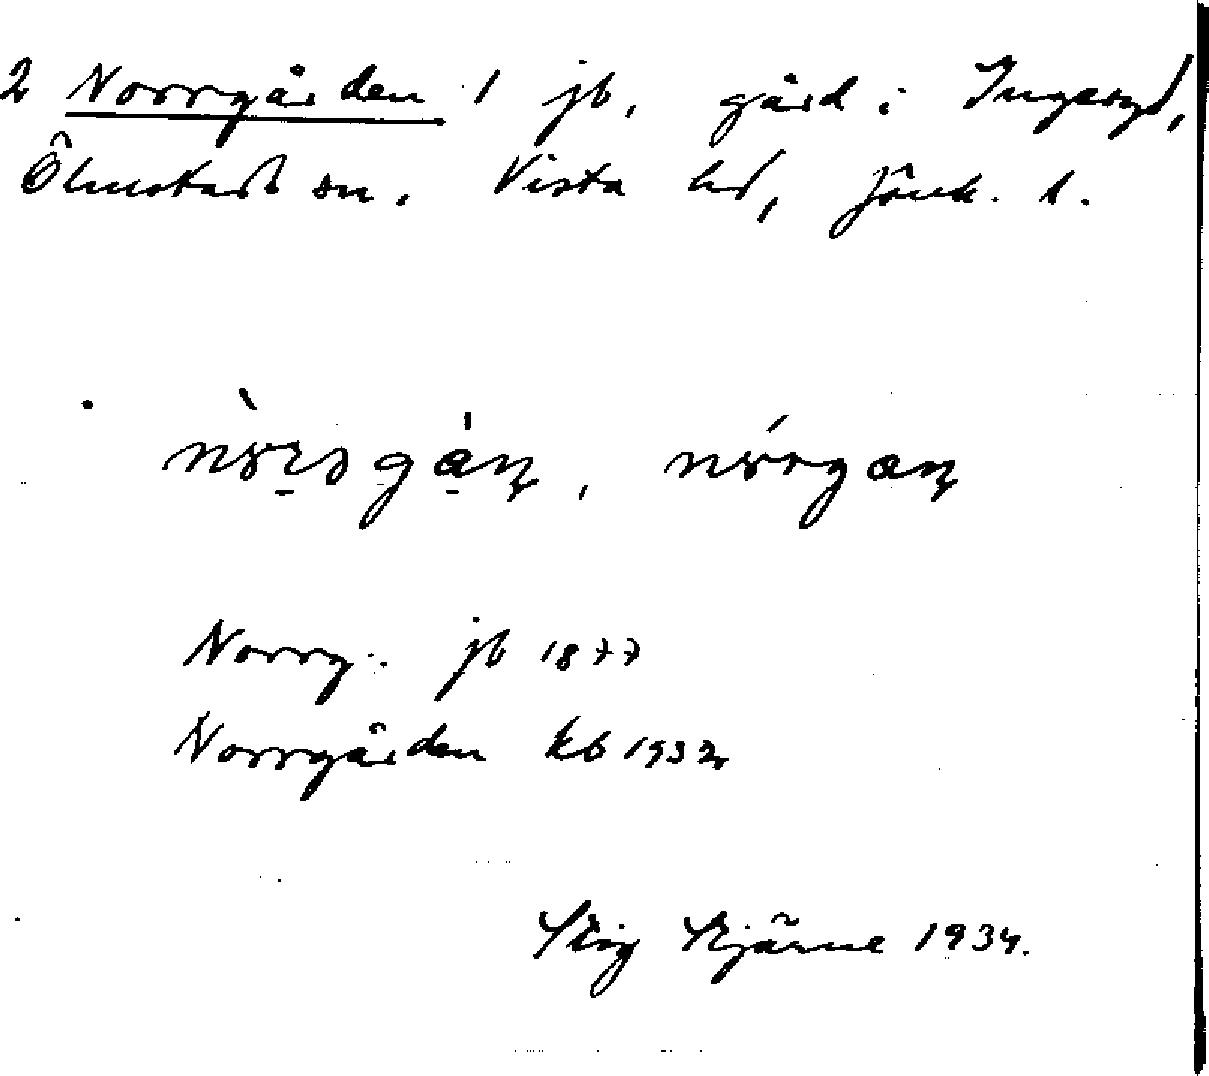 2 Norrgården 1 jb, gård i Ingaryd,
Ölmstad sn, Vista hd, Jönk. l.
Norrg:. jb 1877
Norrgården kb 1932
Stig Stjärne 1934.